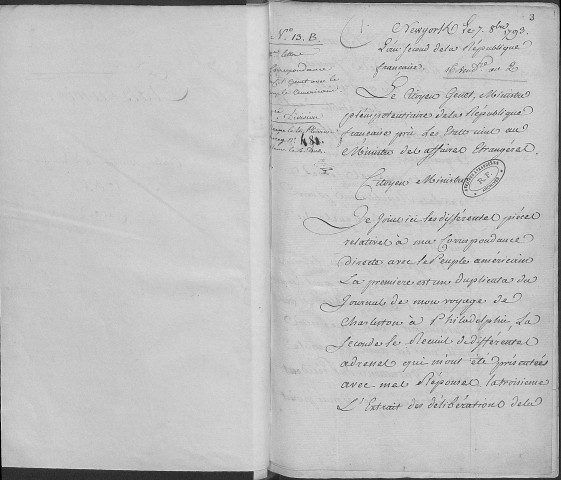 3
Newyork Le 7. 8bre 1793.
L'an second de la République
française. 16 Vend.re an 2
N.o 13. B.
lettre
Correspondance
Genet avec le
Américain
Division
480
Le Citoyen Genet, Ministre
plénipotentiaire de la République
française près Les Etats unis au
Ministre des affaires Etrangeres.
Citoyen Ministre
R.F.
Je Joins ici les différentes pièces
relatives à ma Correspondance
directe avec le Peuple américain
La premiere est un duplicata du
Journal de mon voyage de
Charleston à Philadelphie, La
seconde le Recueil de différentes
adresses qui m'ont été présentées
avec mes Réponses. la troisieme
L'Extrait des délibérations de la